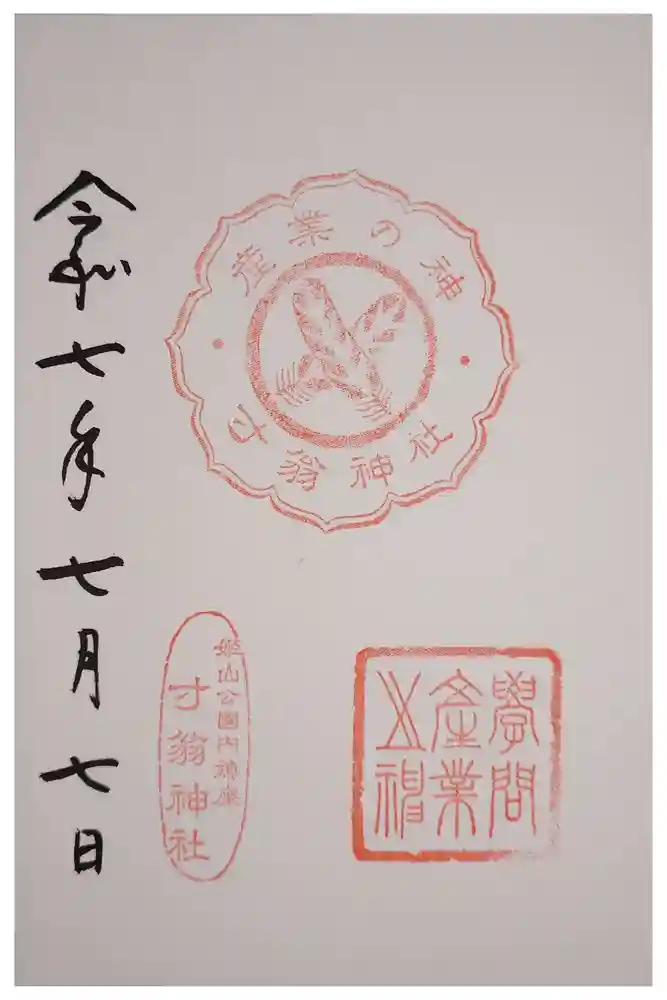 産業の神
寸翁神社
學問
產業
神
姫山公園内
寸翁神社
令和七年七月七日